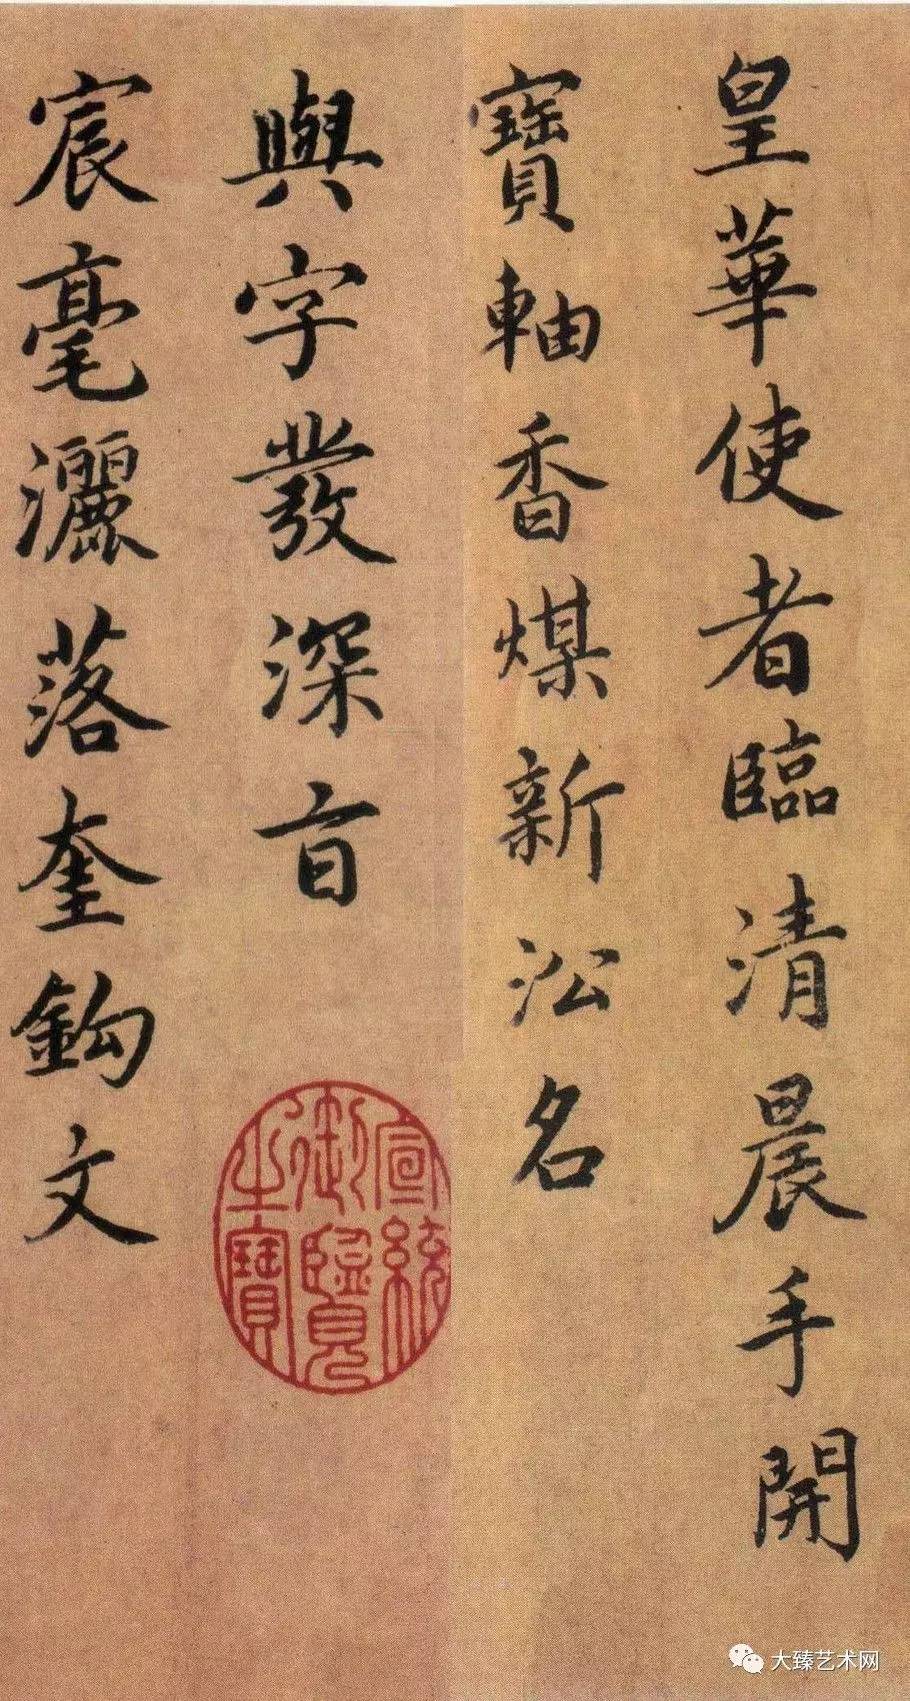 皇華使者臨清晨手開
寶軸香煤新沁名
與字發深盲
宸毫灑落奎鈎文
宣統
御覽
之寶
大臻艺术网